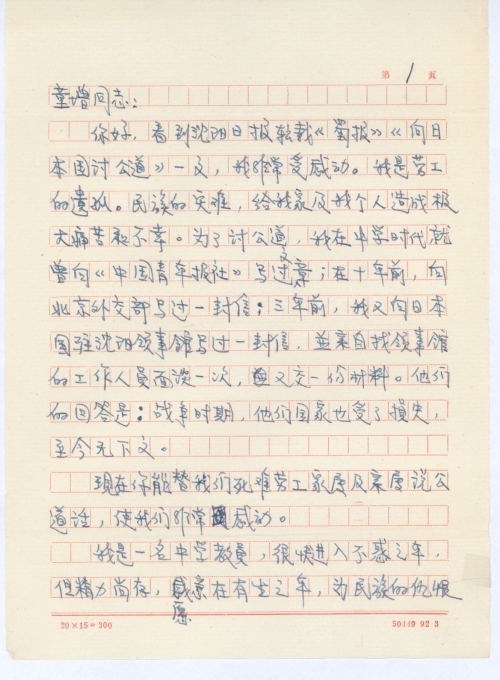 第 1 页
童增同志:
你好,看到沈阳日报转载《蜀报》《向日
本国讨公道》一文,我非常受感动。我是劳工
的遗孤。民族的灾难,给我家及我个人造成极
大痛苦和不幸。为了讨公道,我在中学时代就
曾向《中国青年报社》写过文章;在十年前,向
北京外交部写过一封信;三年前,我又向日本
国驻沈阳领事馆写过一封信,并亲自找领事馆
的工作人员面谈一次,又交一份材料。他们
的回答是:战争时期,他们国家也受了损失,
至今无下文。
现在你能替我们死难劳工家属及亲属说公
道话,使我们非常感动。
我是一名中学教员,很快进入不惑之年,
但精力尚存,愿在有生之年,为民族的仇恨
20×15=300 50149 92 3